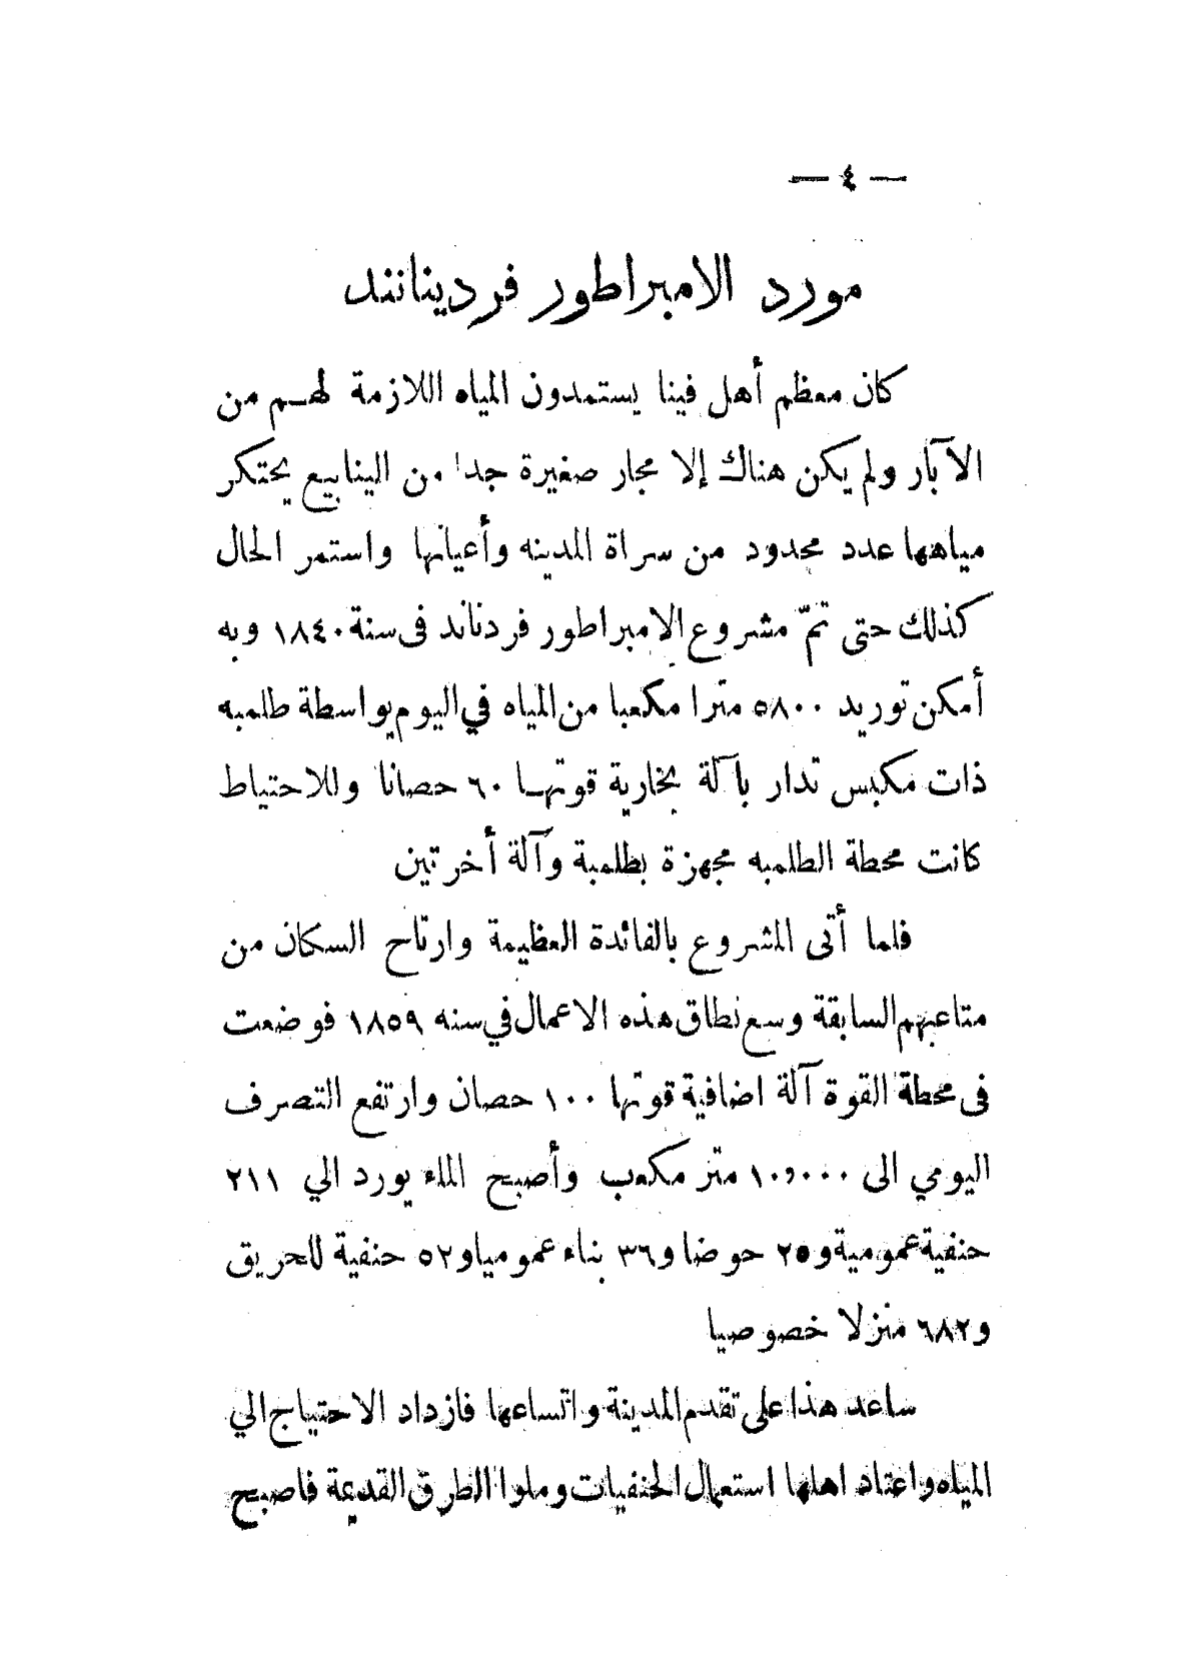 — ٤ —
مورد الامبراطور فردينانند
كان معظم أهل فينا يستمدون المياه اللازمة لهـم من
الآبار ولم يكن هناك إلا مجار صغيرة جدا من الينابيع يحتكر
مياهها عدد محدود من سراة المدينه وأعيانها واستمر الحال
كذلك حتى تمّ مشروع الامبراطور فردناند فى سنة ١٨٤٠ وبه
أمكن توريد ٥٨٠٠ مترا مكعبا من المياه في اليوم بواسطة طلمبه
ذات مكبس تدار بآلة بخارية قوتهـا ٦٠ حصانا وللاحتياط
كانت محطة الطلمبه مجهزة بطلمبة وآلة أخرتين
فلما أتى المشروع بالفائدة العظيمة وارتاح السكان من
متاعبهم السابقة وسع نطاق هذه الاعمال في سنه ١٨٥٩ فوضعت
فى محطة القوة آلة اضافية قوتها ١٠٠ حصان وارتفع التصرف
اليومي الى ١٠,٠٠٠ متر مكعب وأصبح الماء يورد الي ٢١١
حنفية عمومية و٢٥ حوضا و٣٦ بناء عموميا و٥٢ حنفية للحريق
و٦٨٢ منزلا خصوصيا
ساعد هذا على تقدم المدينة واتساعها فازداد الاحتياج الي
المياه واعتاد اهلها استعمال الحنفيات وملوا الطرق القديمة فاصبح